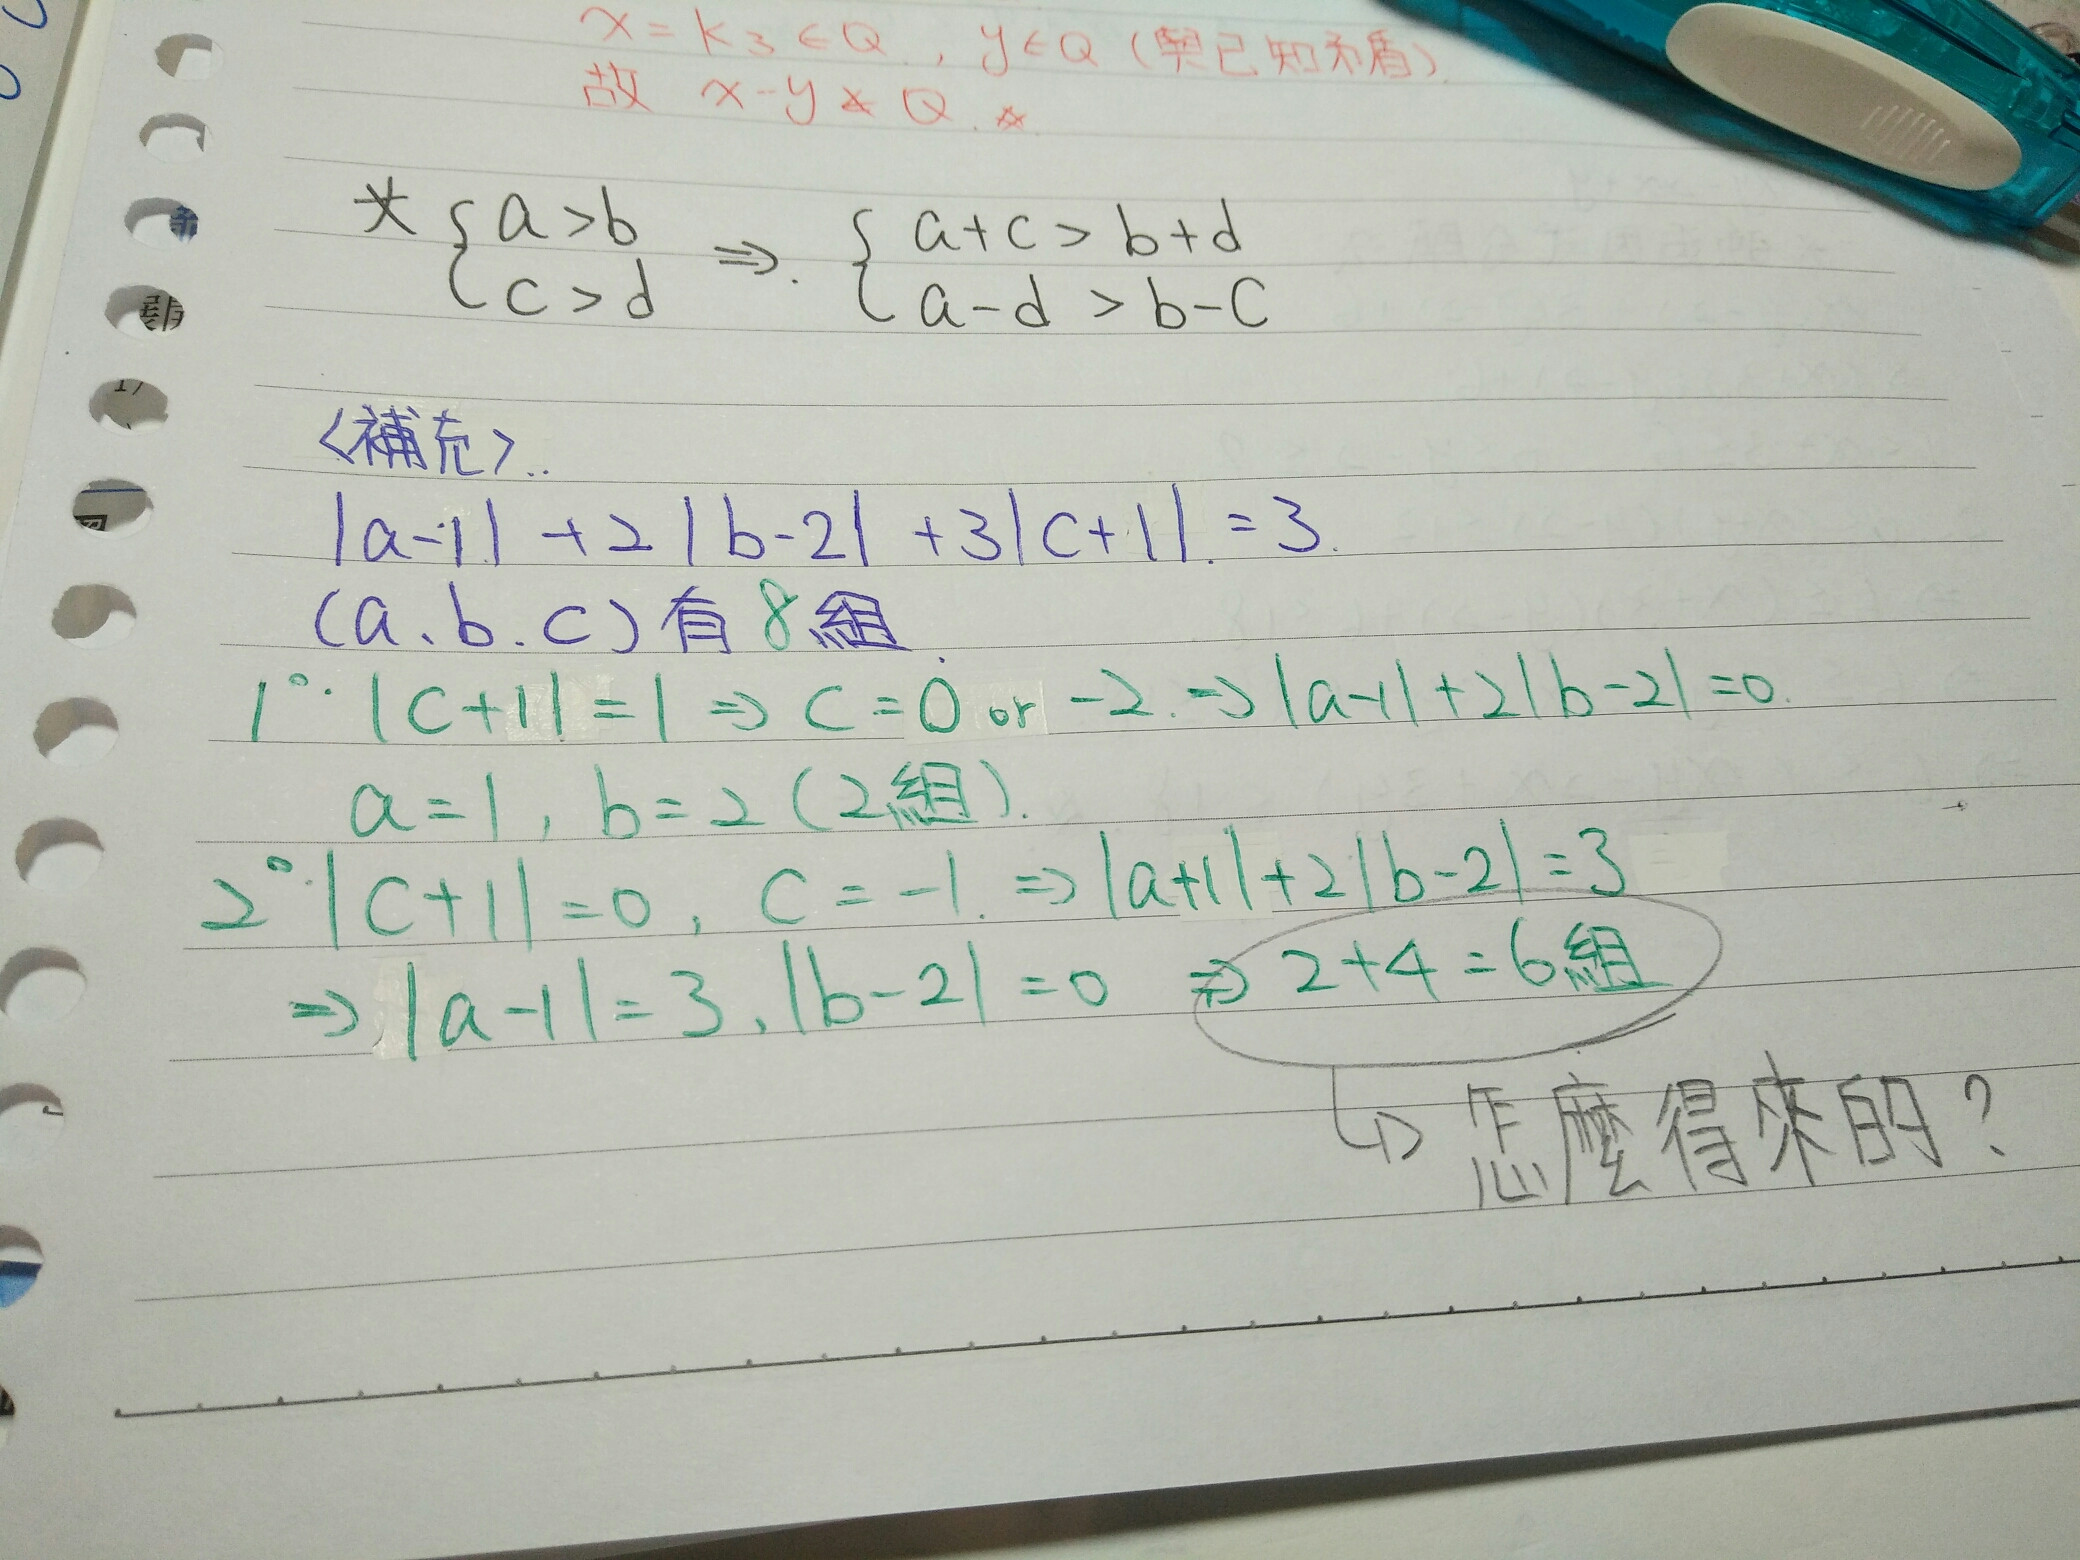 x=k₃∈Q, y∈Q (與已知矛盾)
故 x-y∉Q.☆
* { a>b ⇒. { a+c>b+d
{ c>d { a-d>b-c
<補充>..
|a-1|+2|b-2|+3|c+1|=3.
(a、b.c)有8組.
1°.|c+1|=1⇒c=0 or -2.⇒|a-1|+2|b-2|=0.
a=1, b=2(2組).
2°.|c+1|=0, c=-1.⇒|a+1|+2|b-2|=3
⇒|a-1|=3、|b-2|=0 ⇒2+4=6組
↳怎麼得來的?